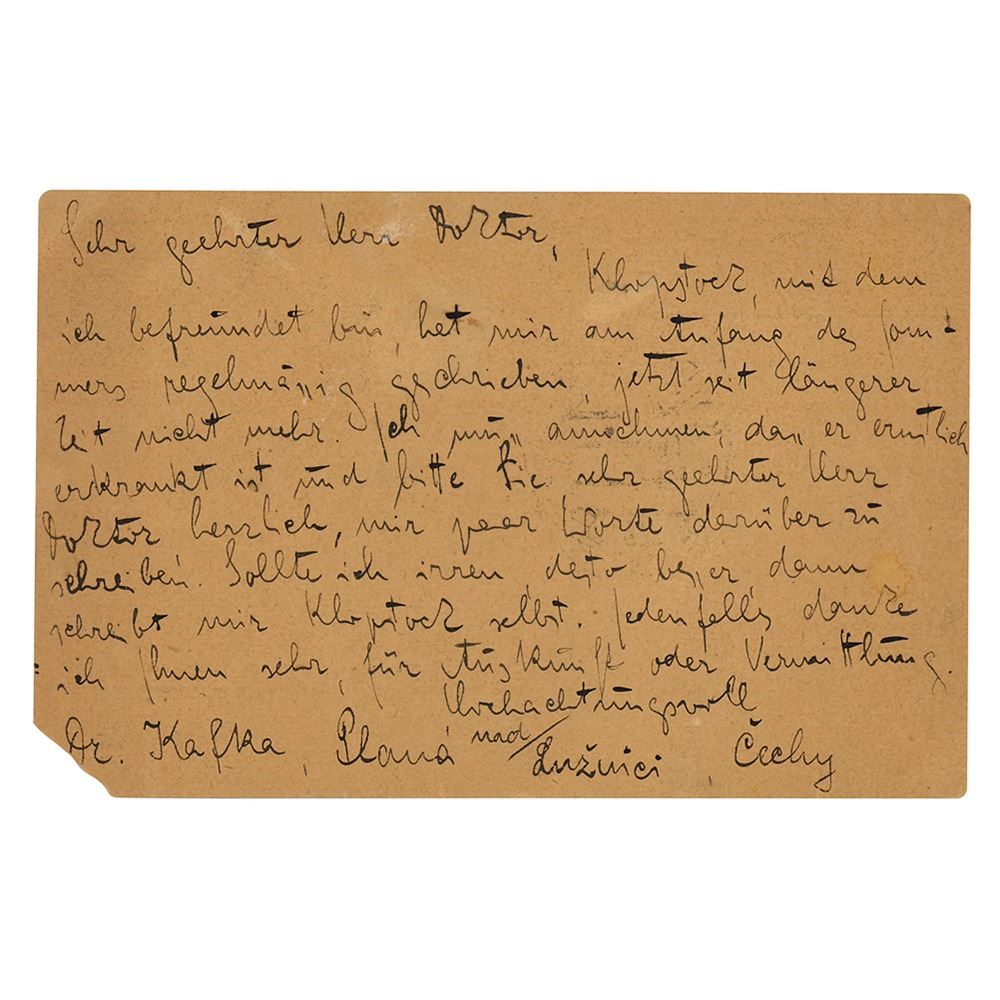 Sehr geehrter Herr Doktor,
Klopstock, mit dem
ich befreundet bin, hat mir am Anfang des Som-
mers regelmässig geschrieben, jetzt seit längerer
Zeit nicht mehr. Ich muss annehmen, dass er ernstlich
erkrankt ist und bitte Sie sehr geehrter Herr
Doktor herzlich, mir paar Worte darüber zu
schreiben. Sollte ich irren, desto besser, dann
schreibt mir Klopstock selbst. Jedenfalls danke
ich Ihnen sehr für Auskunft oder Vermittlung.
Hochachtungsvoll
Dr. Kafka, Planá nad/Lužnici, Čechy